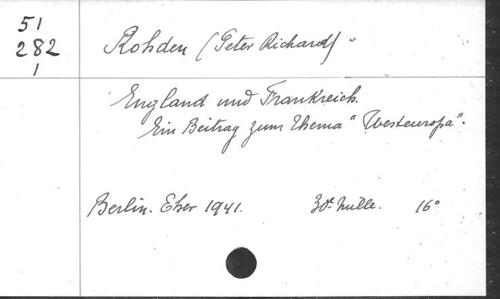 51
282
1
Rohden (Peter Richard)
England und Frankreich.
Ein Beitrag zum Thema "Westeuropa".
Berlin. Eher 1941. 30e mille. 16°